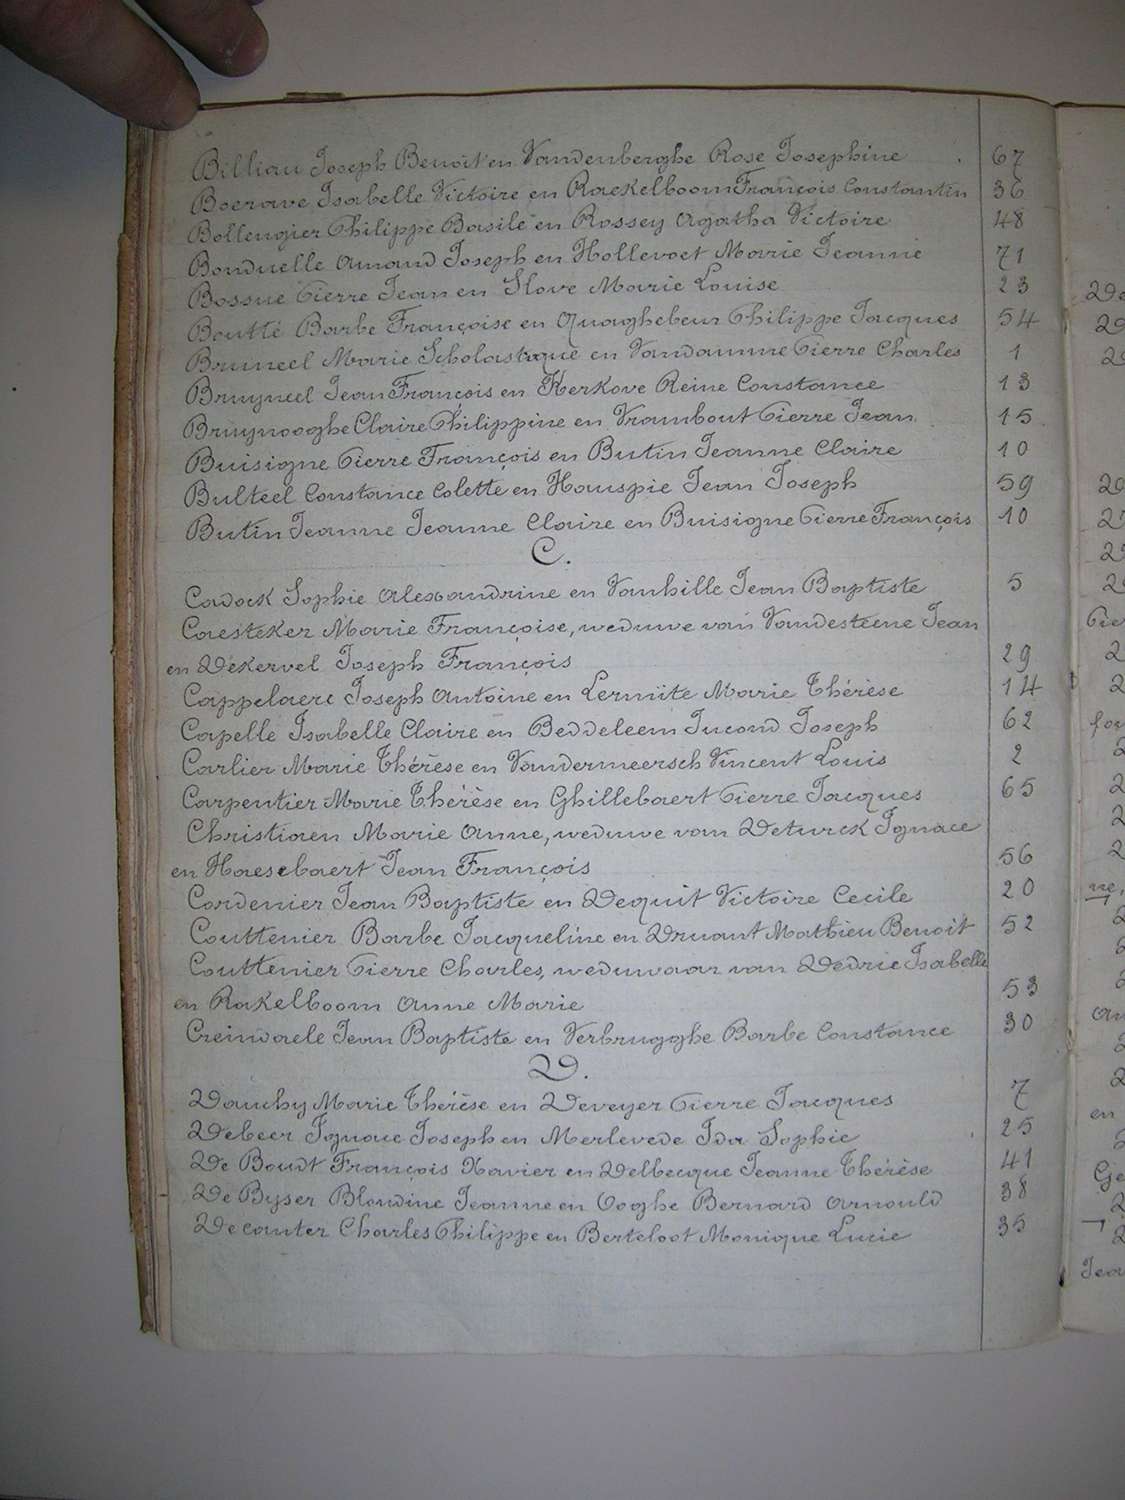 Billiau Joseph Benoit en Vandenberghe Rose Josephine 67
Boerave Isabelle Victoire en Raekelboom François Constantin 36
Bollengier Philippe Basile en Rossey Agatha Victoire 48
Bonduelle Amand Joseph en Hollevoet Marie Jeanne 71
Bossue Pierre Jean en Slove Marie Louise 23
Boutté Barbe Françoise en Quaghebeur Philippe Jacques 54
Bruneel Marie Scholastique en Vandamme Pierre Charles 1
Bruyneel Jean François en Kerkove Reine Constance 13
Bruynooghe Claire Philippine en Vrambout Pierre Jean 15
Buisigne Pierre François en Butin Jeanne Claire 10
Bulteel Constance Colette en Hauspie Jean Joseph 59
Butin Jeanne Jeanne Claire en Buisigne Pierre François 10
C.
Cadock Sophie Alexandrine en Vanhille Jean Baptiste 5
Caesteker Marie Françoise, weduwe van Vandesteene Jean
en Dekervel Joseph François 29
Cappelaere Joseph Antoine en Lermite Marie Thérèse 14
Capelle Isabelle Claire en Beddeleem Jucond Joseph 62
Carlier Marie Thérèse en Vandermeersch Vincent Louis 2
Carpentier Marie Thérèse en Ghillebaert Pierre Jacques 65
Christiaen Marie Anne, weduwe van Deturck Ignace
en Haesebaert Jean François 56
Cordenier Jean Baptiste en Dequit Victoire Cecile 20
Couttenier Barbe Jacqueline en Druant Mathieu Benoit 52
Couttenier Pierre Charles, weduwaar van Dedrie Isabelle
en Rakelboom Anne Marie 53
Creindaele Jean Baptiste en Verbrugghe Barbe Constance 30
D.
Dauchy Marie Thérèse en Deveyer Pierre Jacques 7
Debeer Ignace Joseph en Merlevede Ida Sophie 25
De Boudt François Xavier en Delbecque Jeanne Thérèse 41
De Byser Blondine Jeanne en Ooghe Bernard Arnould 38
Decanter Charles Philippe en Berteloot Monique Lucie 35